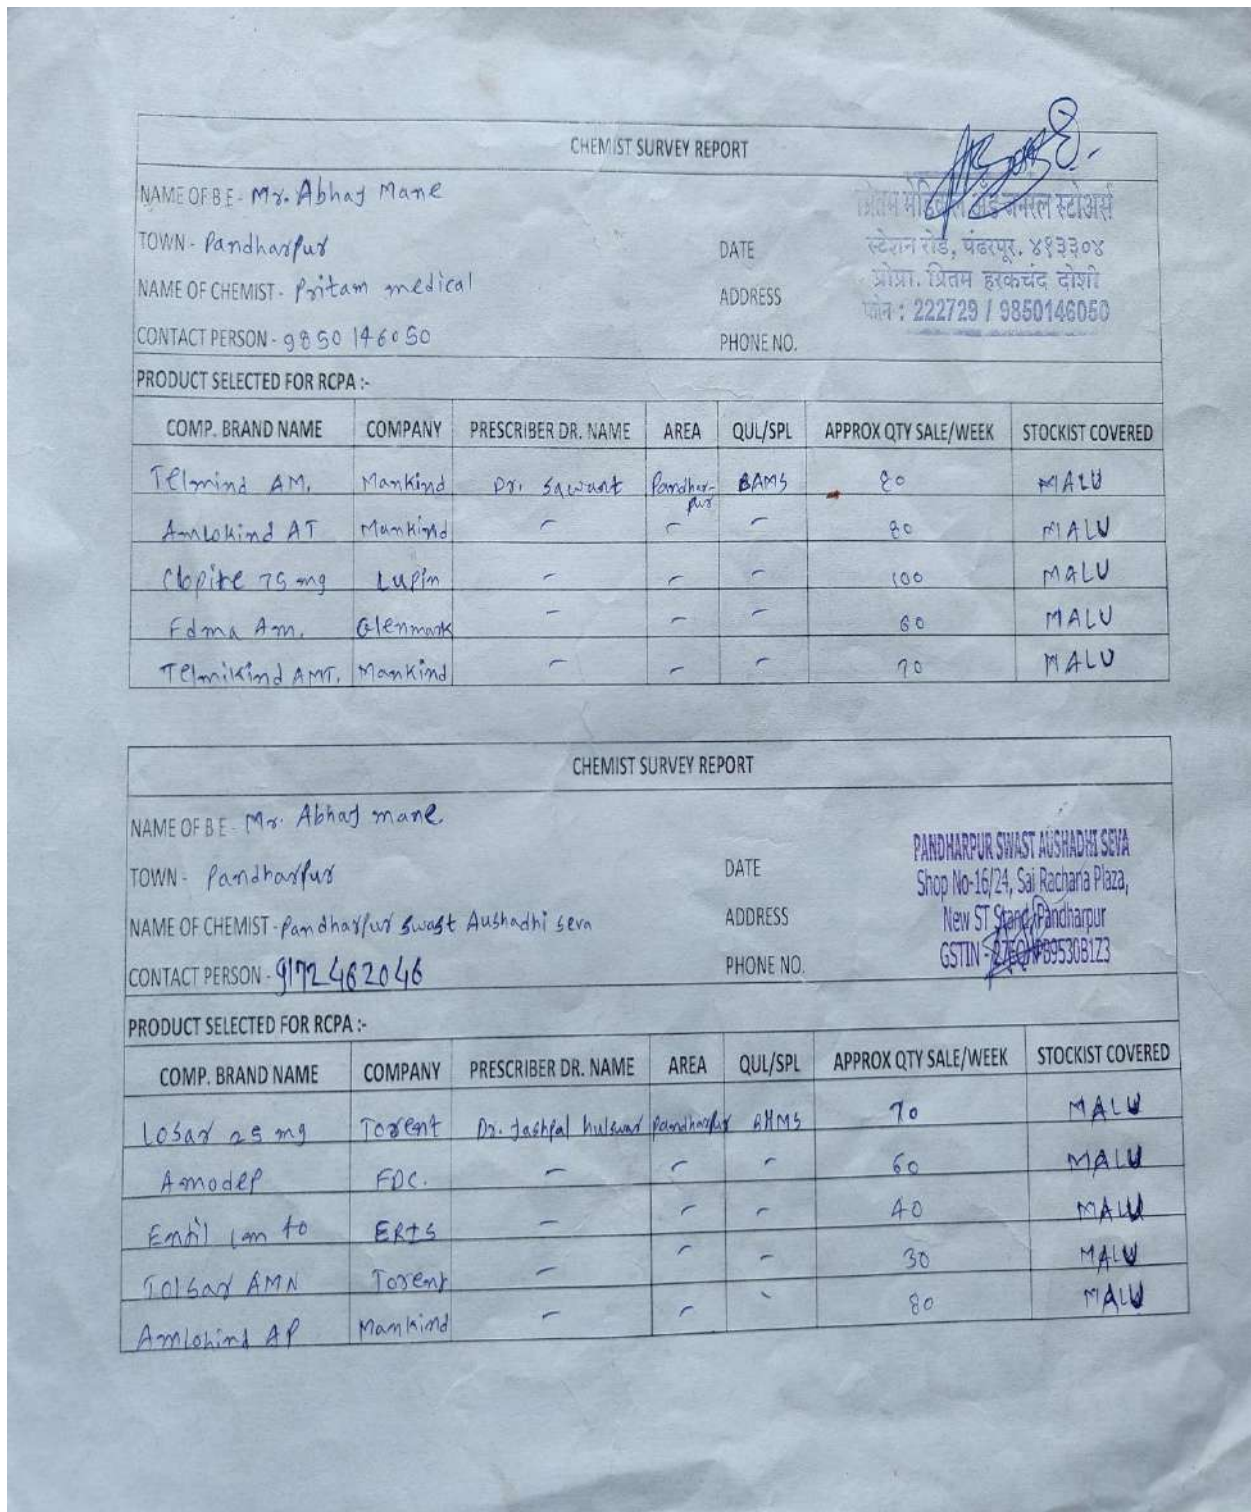 CHEMIST SURVEY REPORT
NAME OF B E - Mr. Abhay Mane
TOWN - Pandharpur
DATE
NAME OF CHEMIST - Pritam medical
ADDRESS
CONTACT PERSON - 9850146050
PHONE NO.
प्रितम मेडिकल अँड जनरल स्टोअर्स
स्टेशन रोड, पंढरपूर. ४१३३०४
प्रोप्रा. प्रितम हरकचंद दोशी
फोन : 222729 / 9850146050
PRODUCT SELECTED FOR RCPA :-
COMP. BRAND NAME COMPANY PRESCRIBER DR. NAME AREA QUL/SPL APPROX QTY SALE/WEEK STOCKIST COVERED
Telmind AM. Mankind Dr. Sawant Pandhar-pur BAMS 80 MALU
Amlokind AT Mankind - - - 80 MALU
Clopite 75 mg Lupin - - - 100 MALU
Fdma Am. Glenmark - - - 60 MALU
Telmikind AMT. Mankind - - - 70 MALU
CHEMIST SURVEY REPORT
NAME OF B E - Mr. Abhay mane
TOWN - Pandharpur
DATE
NAME OF CHEMIST - Pandharpur Swast Aushadhi seva
ADDRESS
CONTACT PERSON - 9172462046
PHONE NO.
PANDHARPUR SWAST AUSHADHI SEVA
Shop No-16/24, Sai Rachana Plaza,
New ST Stand, Pandharpur
GSTIN -
PRODUCT SELECTED FOR RCPA :-
COMP. BRAND NAME COMPANY PRESCRIBER DR. NAME AREA QUL/SPL APPROX QTY SALE/WEEK STOCKIST COVERED
Losar 25 mg Torent Dr. Jashpal Pandharpur BHMS 70 MALU
Amodep FDC. - - - 60 MALU
ERIS - - - 40 MALU
Tolsar AMN Torent - - - 30 MALU
Amlokind AP Mankind - - - 80 MALU